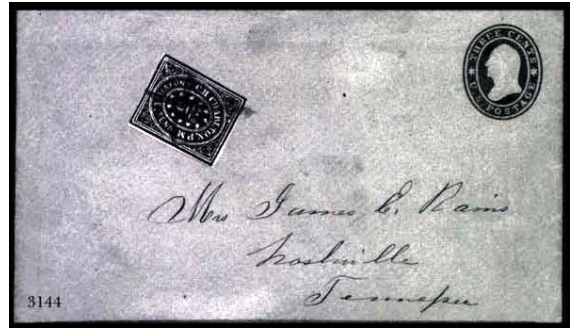 THREE CENTS
U.S. POSTAGE
CH CHARLTON. P.M.
Mrs James E. Rains
Nashville
Tennessee
3144